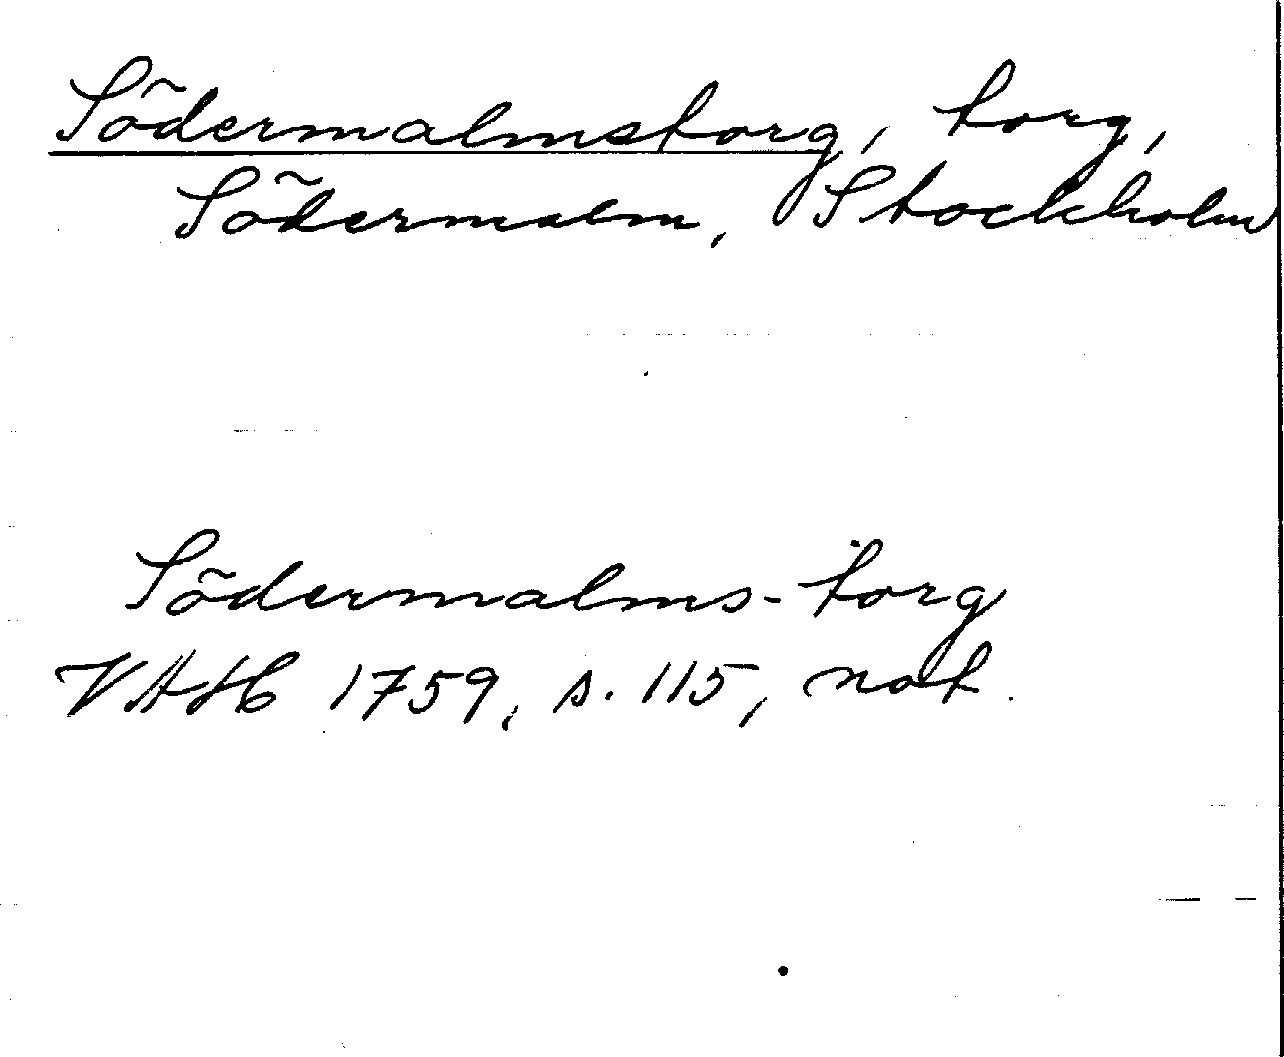 Södermalmstorg, torg,
Södermalm, Stockholm
Södermalms-torg
VAH 1759, s. 115, not.